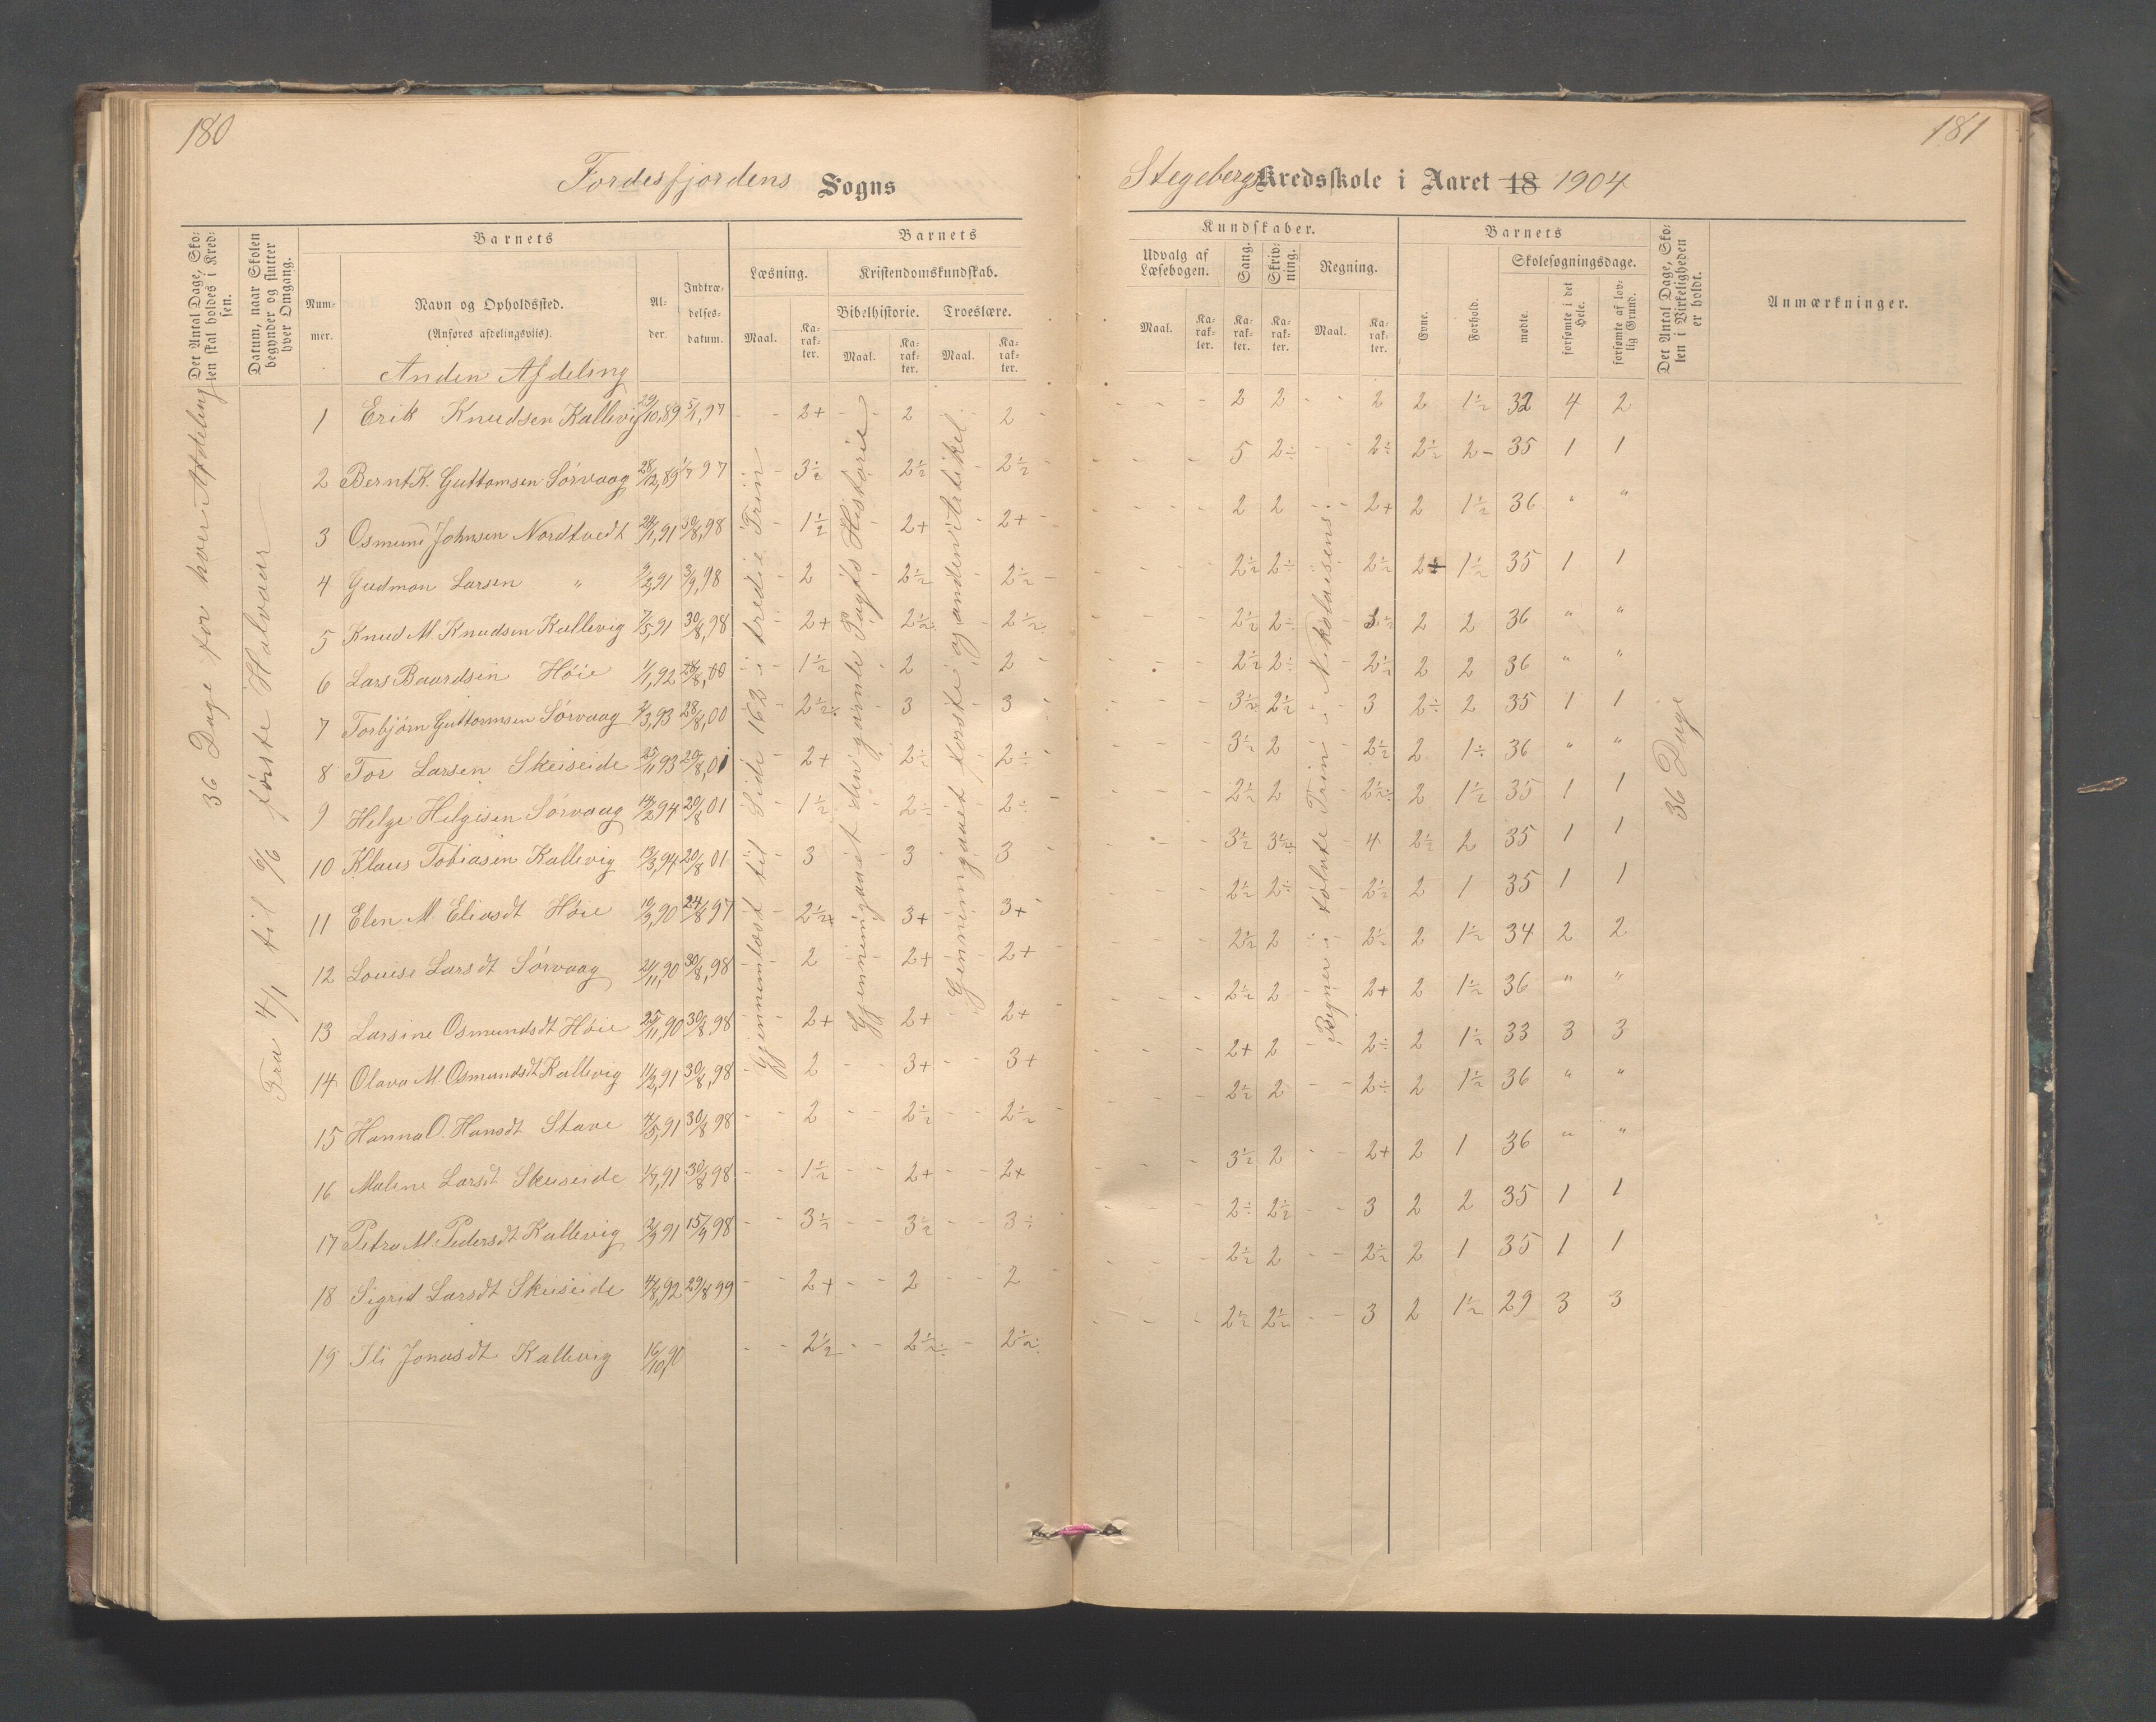 180
Fordesfjordens Sogns
Det Antal Dage, Skolen skal holdes i Kredsen.
Datum, naar Skolen begynder og slutter hver Omgang.
Barnets
Nummer.
Navn og Opholdssted.
(Anføres afdelingsvis).
Alder.
Indtrædelses-datum.
Barnets
Læsning.
Kristendomskundskab.
Bibelhistorie.
Troeslære.
Maal.
Karakter.
Maal.
Karakter.
Maal.
Karakter.
Anden Afdeling
36 Dage for hver Afdeling
Fra 4/1 til 6/6 første Halvaar
Gjennemlæst til Side 162 i tredie Trin
Gjennemgaaet den gamle Pagts Historie
Gjennemgaaet første og anden Artikel
1 Erik Knudsen Kallevig 29/10,89 5/1,97 - - 2+ - - 2 - 2
2 Bernt K. Guttomsen Sørvaag 28/12,89 1/7 97 3½ 2½ 2½
3 Osmund Johnsen Nordtvedt 24/1,91 30/8,98 1½ 2+ 2+
4 Gudmon Larsen " 9/2,91 3/9,98 2 2½ 2½
5 Knud M. Knudsen Kallevig 7/5,91 30/8,98 2+ 2½ 2½
6 Lars Baardsen Høie 1/1,92 28/8,00 1½ 2 2
7 Torbjørn Guttormsen Sørvaag 4/3,93 28/8,00 2½ 3 3
8 Tor Larsen Skeiseide 25/11 93 20/8,01 2+ 2½ 2÷
9 Helge Helgesen Sørvaag 14/2 94 20/8 01 1½ 2÷ 2÷
10 Klaus Tobiasen Kallevig 13/3,94 20/8 01 3 3 3
11 Elen M. Eliasdt Høie 10/3,90 24/8 97 2½+ 3+ 3+
12 Louise Larsdt Sørvaag 21/11,90 30/8,98 2 2+ 2+
13 Larsine Osmundsdt Høie 25/11,90 30/8,98 2+ 2+ 2+
14 Olava M. Osmundsdt Kallevig 11/2,91 30/8,98 2 3+ 3+
15 Hanna O. Hansdt Stave 7/5,91 30/8 98 2 2½ 2½
16 Malene Larsdt Skeiseide 1/7,91 30/8 98 1½ 2+ 2+
17 Petra M. Pedersdt Kallevig 2/9,91 15/9 98 3½ 3½ 3÷
18 Sigrid Larsdt Skeiseide 4/8,92 29/8 99 2+ 2 2
19 Sli Jonasdt Kallevig 16/10,90 2½ 2½÷ 2½
181
Stegebergs Kredsskole i Aaret 18 1904
Kundskaber.
Udvalg af Læsebogen.
Sang.
Skrivning.
Regning.
Maal.
Karakter.
Karakter.
Karakter.
Maal.
Karakter.
Barnets
Evne.
Forhold.
Skolesøgningsdage.
mødte.
forsømte i det Hele.
forsømte af lovlig Grund.
Det Antal Dage, Skolen i Virkeligheden er holdt.
Anmærkninger.
Regner i tolvte Trin i Nikolaisens
36 Dage
2 2 2 2 1½ 32 4 2
5 2÷ 2÷ 2½ 2- 35 1 1
2 2 2+ 2 1½ 36 " "
2½ 2÷ 2½ 2+ 1½ 35 1 1
2½ 2÷ 3½ 2 2 36 " "
2½ 2÷ 2½ 2 2 36 " "
3½ 2½ 3 2÷ 2 35 1 1
3½ 2 2½ 2 1÷ 36 " "
2½ 2 2½÷ 2 1½ 35 1 1
3½ 3½ 4 2½ 2 35 1 1
2½ 2÷ 2½ 2 1 35 1 1
2½ 2 2½ 2 1½ 34 2 2
2½ 2 2+ 2 1½ 36 " "
2+ 2 2÷ 2 1½ 33 3 3
2½ 2 2÷ 2 1½ 36 " "
3½ 2 2+ 2 1 36 " "
2÷ 2½ 3 2 2 35 1 1
2½ 2 2½ 2 1 35 1 1
2½ 2½ 3 2 1½ 29 3 3